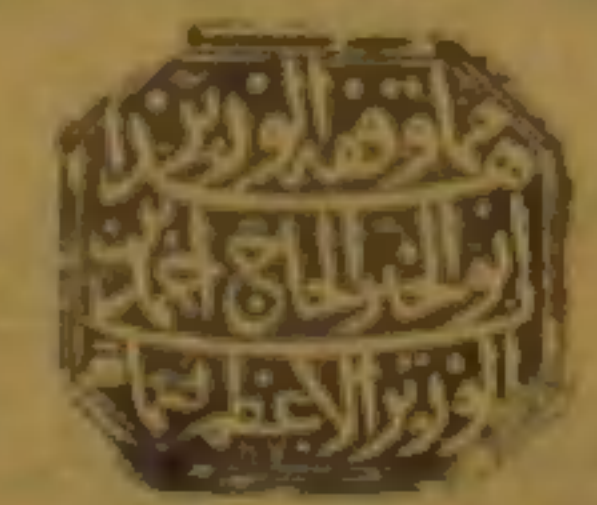 هذا مما وقفه الوزير
ابو الخير الحاج احمد بن
الوزير الاعظم نعمان